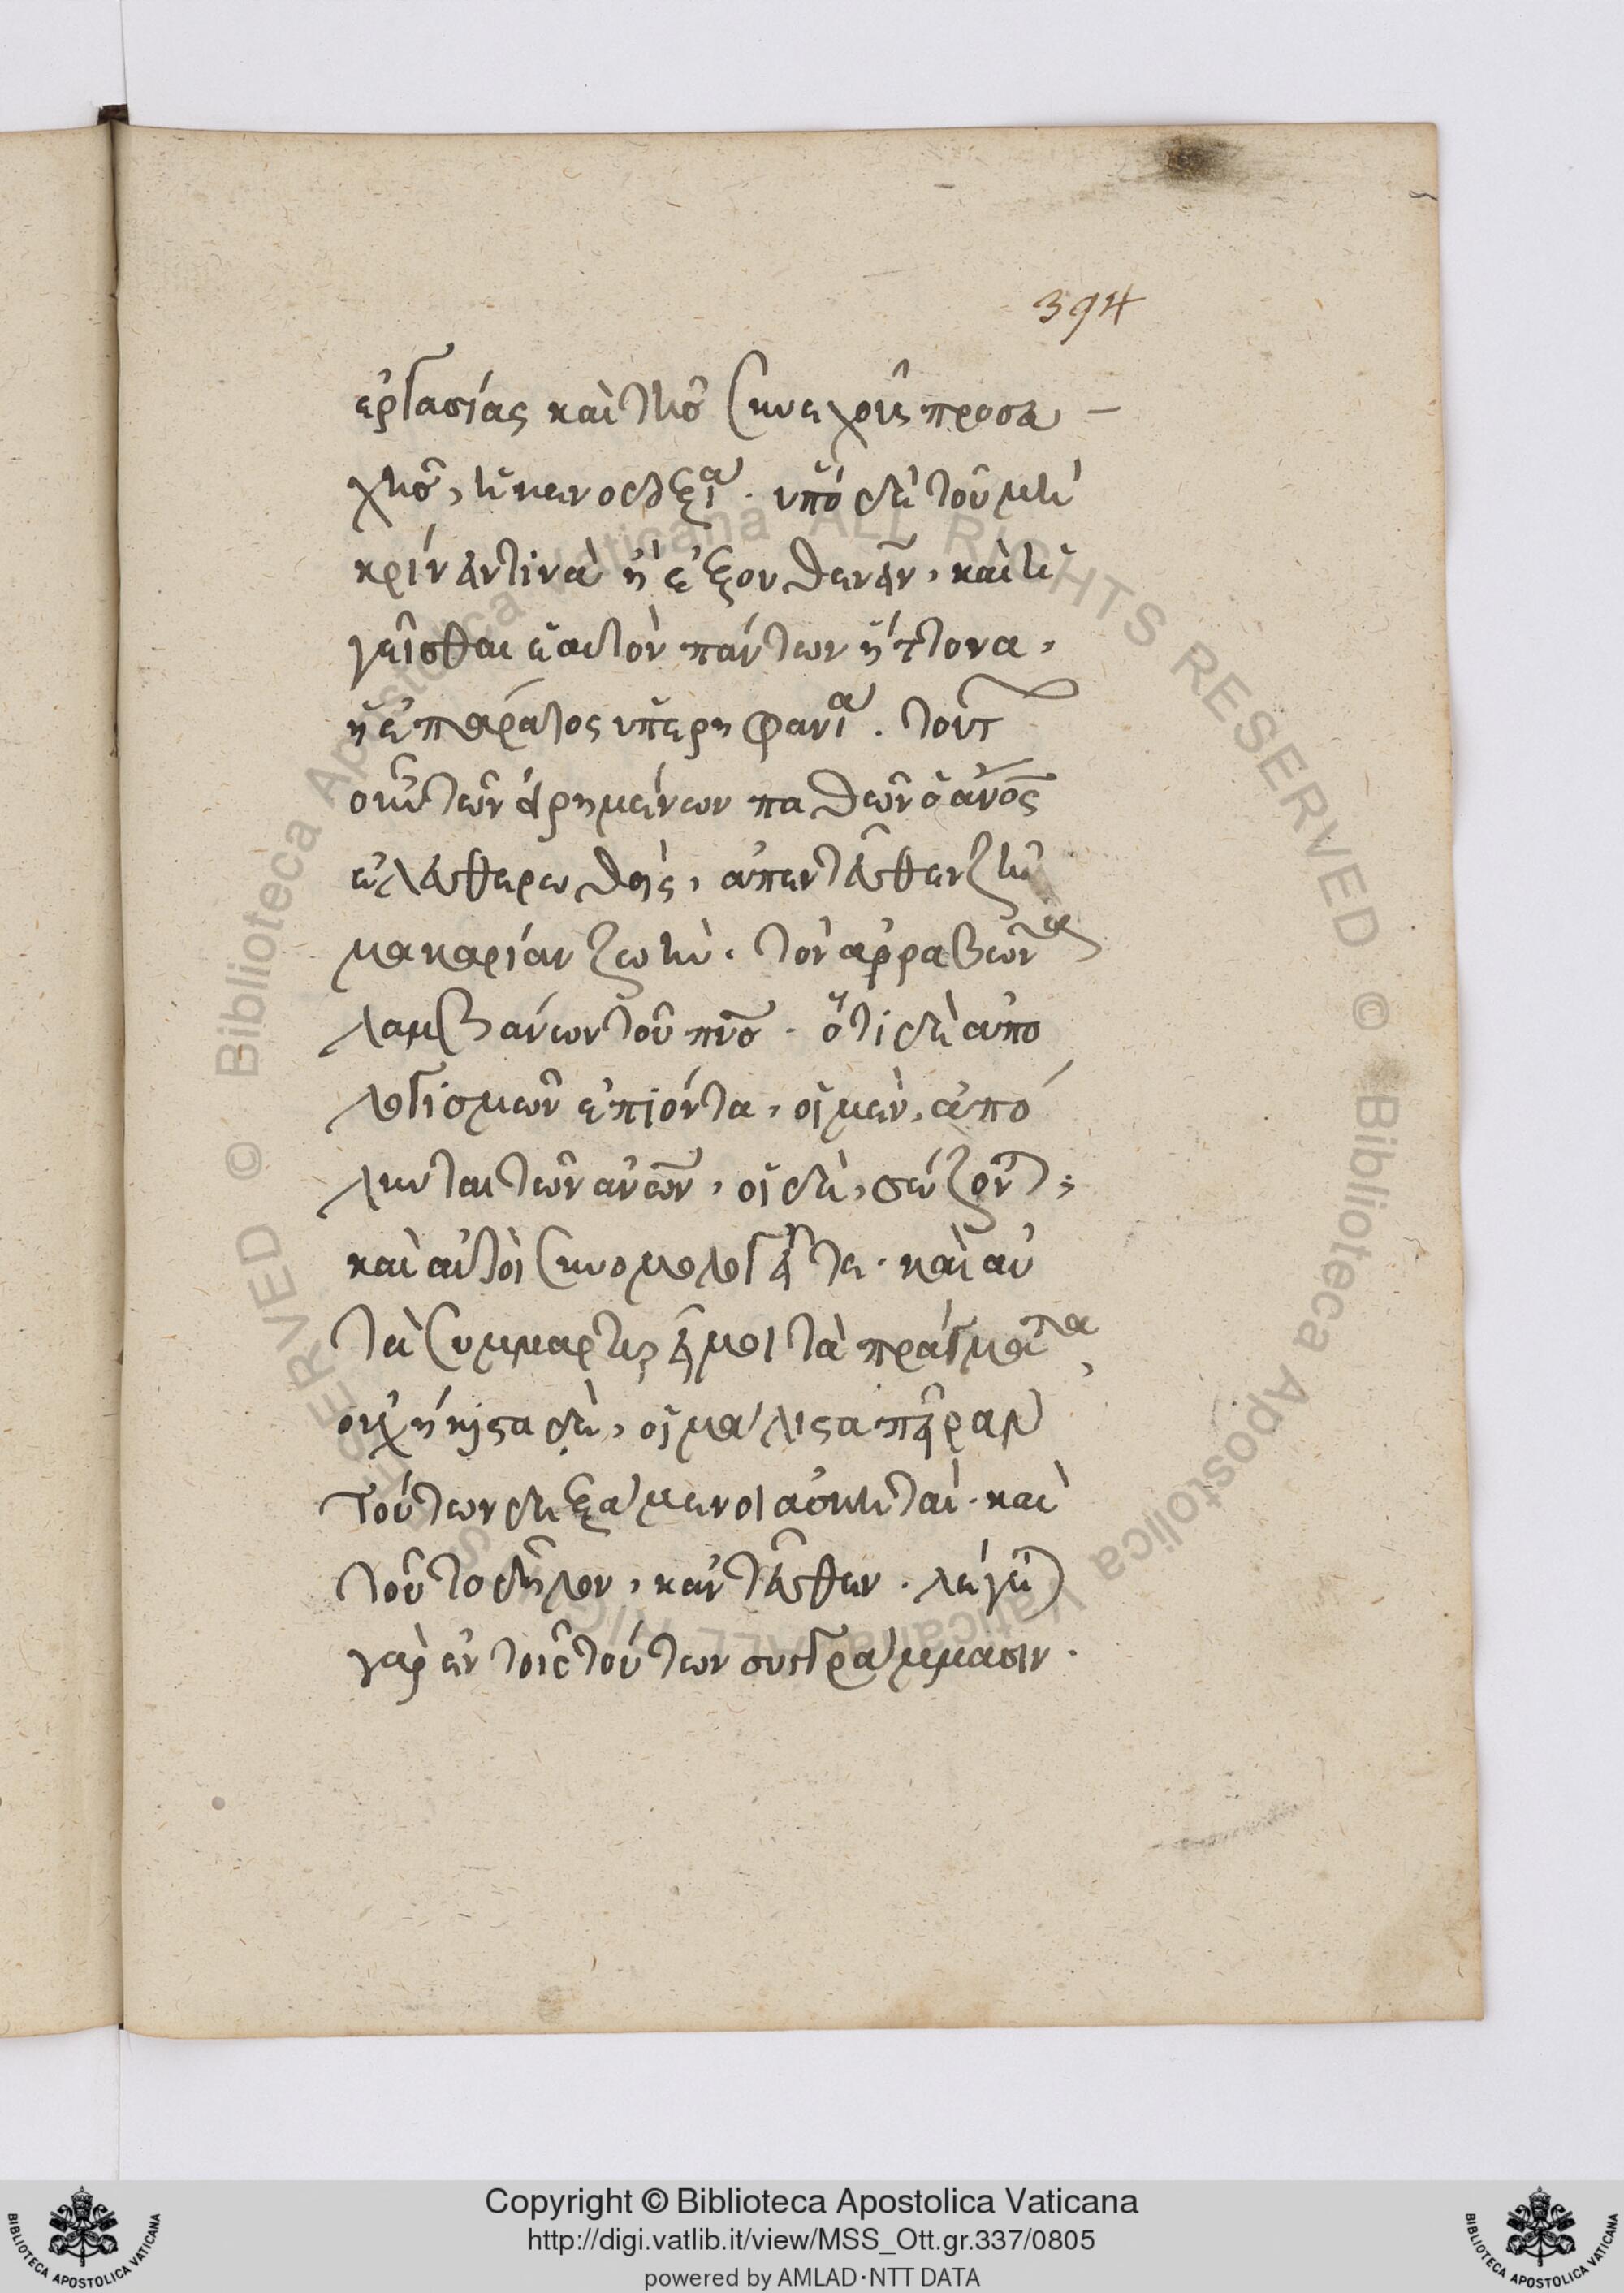 394
ἐργασίας καὶ τῆς συνεχοῦς προσευ-
χῆς, ἡ κενοδοξία. ὑπὸ δὲ τοῦ μὴ
κρίνειν τινὰ ἢ ἐξουθενεῖν, καὶ ἡ
γεῖσθαι ἑαυτὸν πάντων ἥττονα,
ἡ ἐπάρατος ὑπερηφανία. τούτ
οὖν τῶν εἰρημένων παθῶν ὁ ἄνος
ἐλευθερωθεὶς, ἀπεντεῦθεν ζῆ
μακαρίαν ζωὴν. τὸν ἀρραβῶνα
λαμβάνων τοῦ πνς. ὅτι δὲ ἀπὸ
λογισμῶν ἐπιόντα, οἱ μὲν, ἀπό
λυνται τῶν ἀνῶν, οἱ δὲ, σώζοντ;
καὶ αὐτοὶ συνομολογεῖτε. καὶ αὐ
τὰ συμμαρτυρεῖ μοι τὰ πράγματα,
οὐχ ἥκιστα δὲ, οἱ μάλιστα πεῖραν
τούτων δεξάμενοι ἀσκηταί. καὶ
τοῦτο δῆλον, κἀντεῦθεν. λέγει
γὰρ ἐν τοῖς τούτων συγγράμμασιν.
Copyright © Biblioteca Apostolica Vaticana
http://digi.vatlib.it/view/MSS_Ott.gr.337/0805
powered by AMLAD·NTT DATA